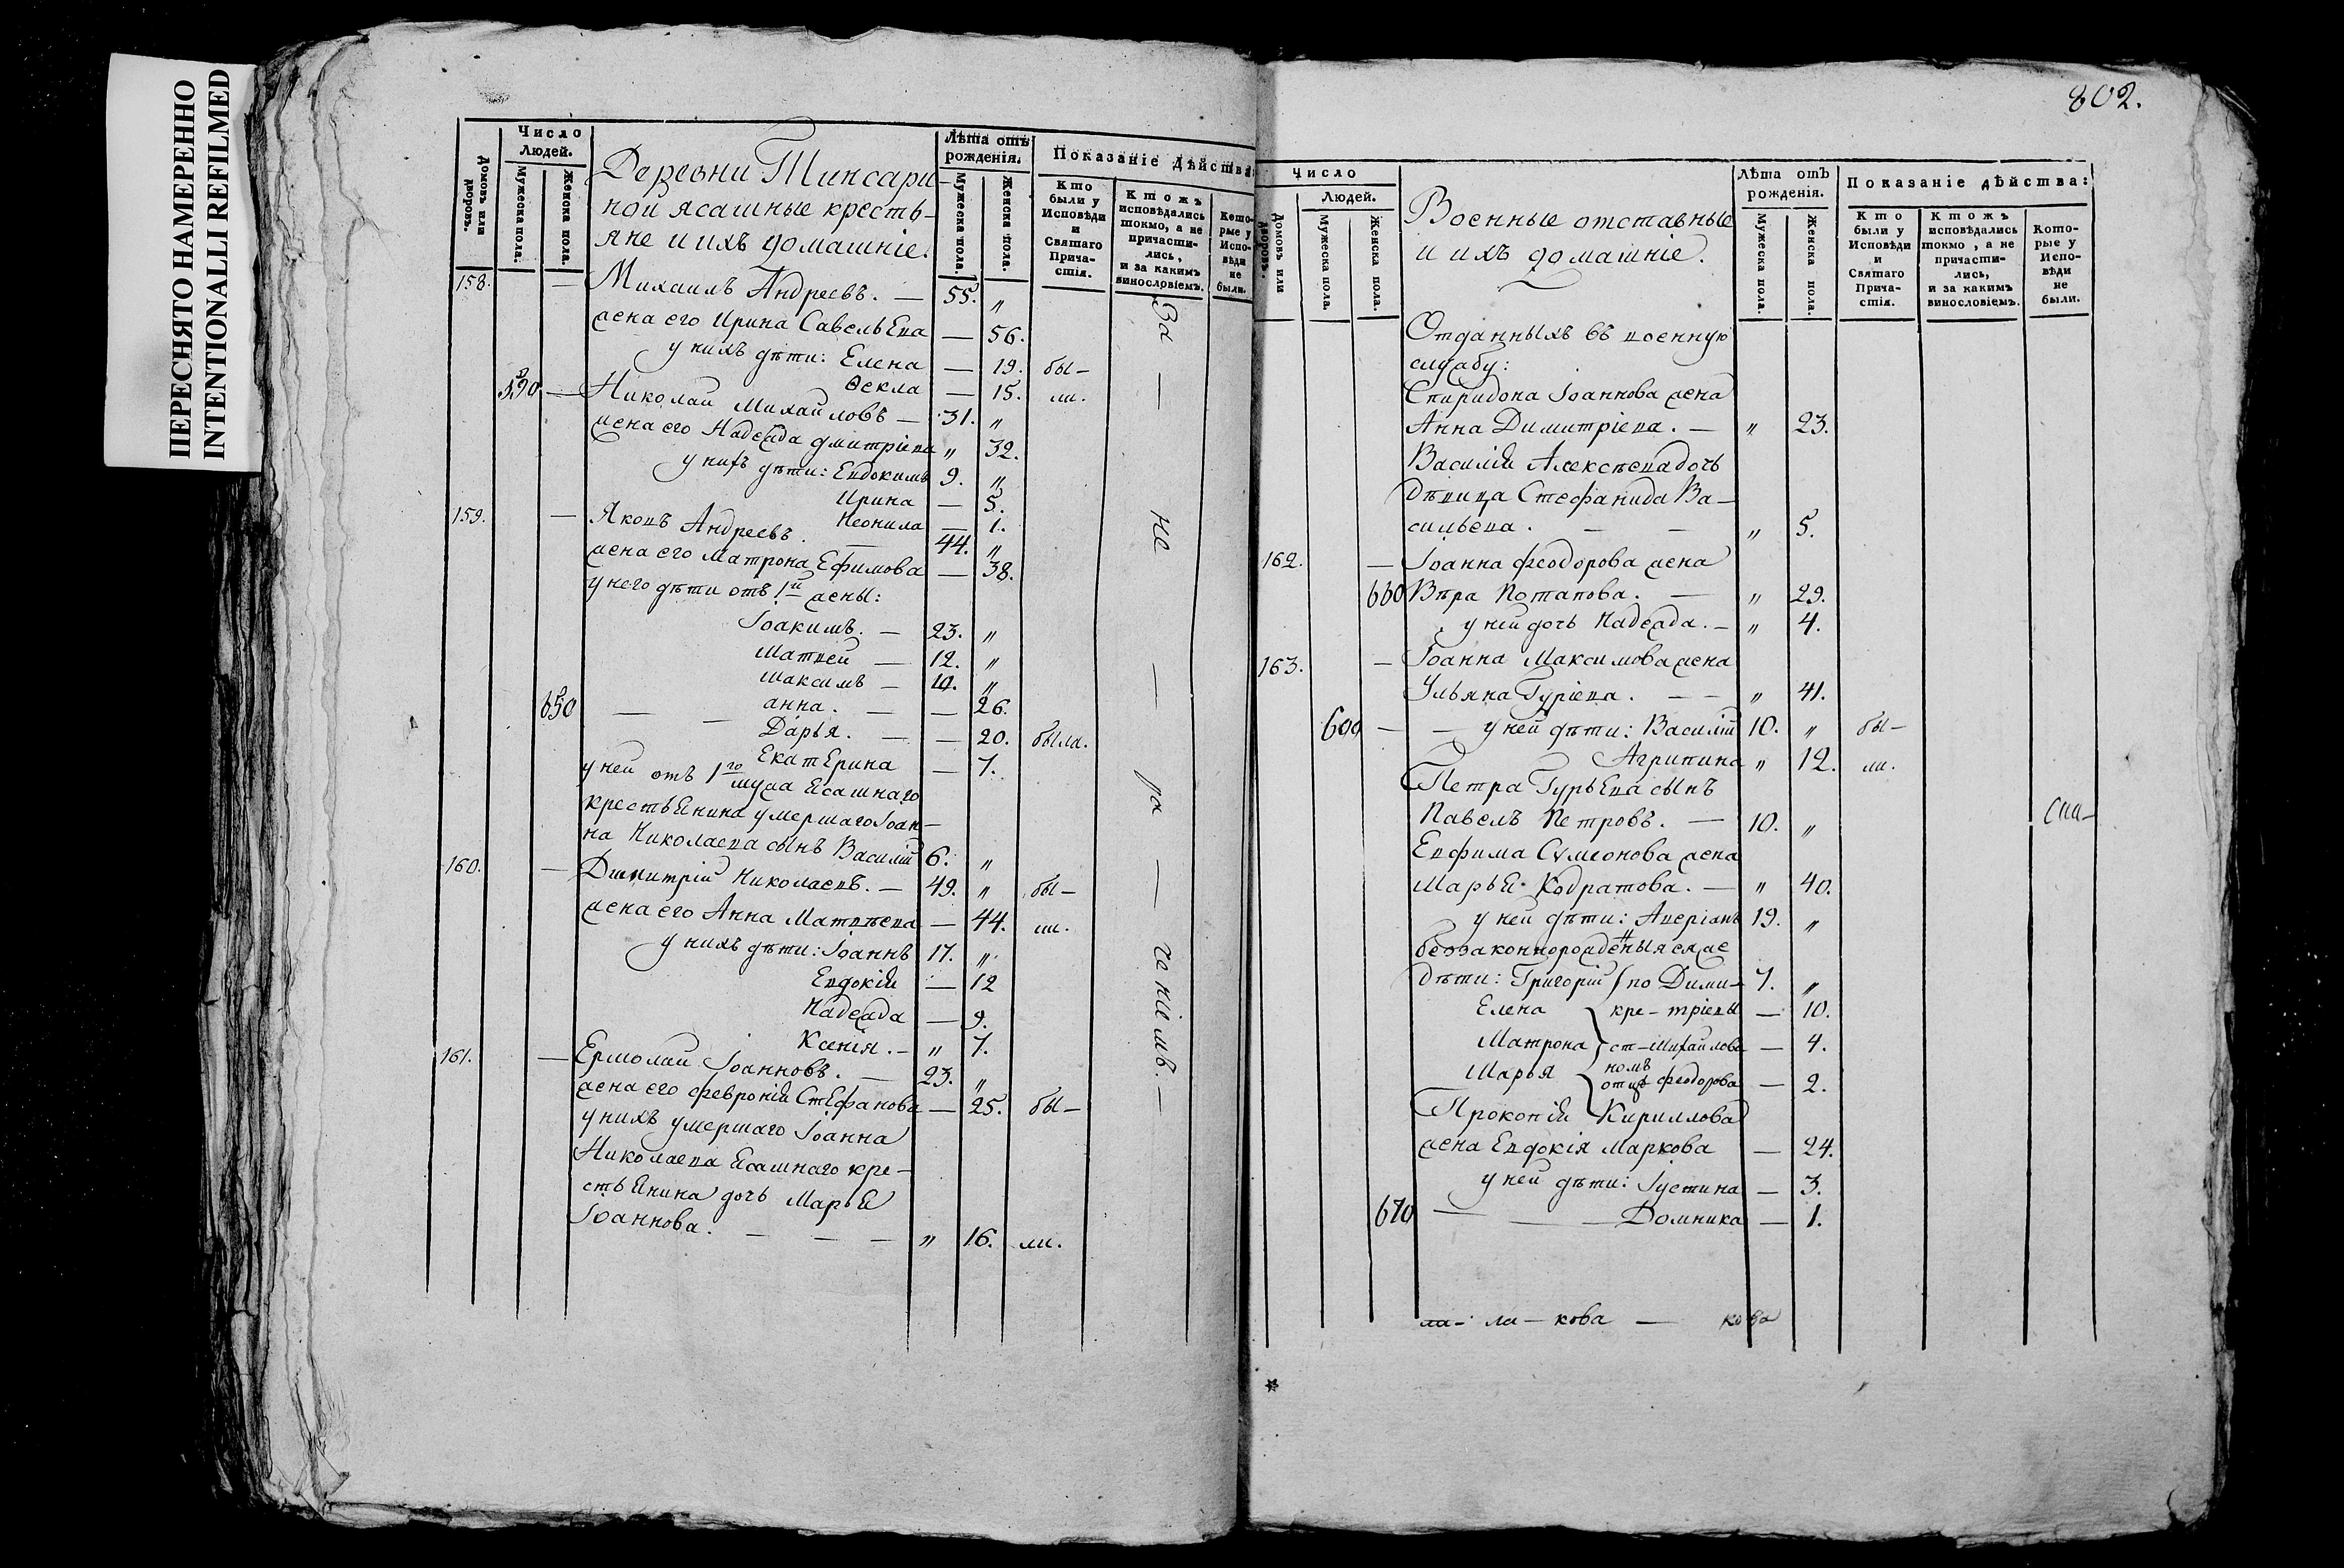 ПЕРЕСНЯТО НАМЕРЕННО
INTENTIONALLI REFILMED
Домовъ или дворовъ.
Число
Людей.
Мужеска пола.
Женска пола.
Деревни Тинсари-
ной ясашные кресть-
яне и ихъ домашніе.
Лѣта отъ
рожденія.
Мужеска пола.
Женска пола.
Показаніе дѣйства:
Кто
были у
Исповѣди
и
Святаго
Прича-
стія.
Ктожъ
исповѣдались
токмо, а не
причасти-
лись,
и за какимъ
винословіемъ.
Кото-
рые у
Испо-
вѣди
не
были.
158. — Михаилъ Андреевъ. — 55. „
жена его Ирина Савельева — 56.
у нихъ дѣти: Елена — 19. бы-
Ѳекла — 15. ли.
590 — Николай Михайловъ — 31. „
жена его Надежда Дмитріева „ 32.
у нихъ дѣти: Евдокимъ 9. „
Ирина — 5.
Неонила — 1.
159. — Яковъ Андреевъ. — 44. „
жена его Матрона Ефимова — 38.
у него дѣти отъ 1й жены:
Іоакимъ. — 23. „
Матвей — 12. „
Максимъ — 10. „
650 — — Анна. — — 26.
Дарья. — — 20. была.
Екатерина — 7.
у ней отъ 1го мужа ясашнаго
крестьянина умершаго Іоан-
на Николаева сынъ Василій 6. „
160. — Димитрій Николаевъ. — 49. „ бы-
жена его Анна Матвѣева — 44. ли.
у нихъ дѣти: Іоаннъ 17. „
Евдокія — 12
Надежда — 9.
Ксенія. — „ 7.
161. — Ермолай Іоанновъ. — 23. „
жена его Февронія Стефанова — 25. бы-
у нихъ умершаго Іоанна
Николаева ясашнаго кре-
стьянина дочь Марья
Іоаннова. — — — „ 16. ли.
За — не — ра — ченіемъ. —
802.
Домовъ или дворовъ.
Число
Людей.
Мужеска пола.
Женска пола.
Военные отставные
и ихъ домашніе.
Лѣта отъ
рожденія.
Мужеска пола.
Женска пола.
Показаніе дѣйства:
Кто
были у
Исповѣди
и
Святаго
Прича-
стія.
Ктожъ
исповѣдались
токмо, а не
причасти-
лись,
и за какимъ
винословіемъ.
Кото-
рые у
Испо-
вѣди
не
были.
Отданныхъ въ военную
службу:
Спиридона Іоаннова жена
Анна Димитріева. — „ 23.
Василія Алексѣева дочь
дѣвица Стефанида Ва-
сильева. — — „ 5.
162. — Іоанна Феодорова жена
660 Вѣра Потапова. — „ 29.
у ней дочь Надежда. — „ 4.
163. — Іоанна Максимова жена
Ульяна Гуріева. — — „ 41.
600 — — у ней дѣти: Василій 10. „ бы-
Агрипина „ 12. ли.
Петра Гурьева сынъ
Павелъ Петровъ. — 10. „ сы-
Евфима Сумеонова жена
Марья Кодратова. — „ 40.
у ней дѣти: Аверіанъ 19. „
беззаконнорожденныя ея же
дѣти: Григорій по Дими- 7. „
Елена кре- тріевы — 10.
Матрона ст- Михайлова — 4.
Марья номъ отцѣ Феодорова — 2.
Прокопія Кириллова
жена Евдокія Маркова — 24.
у ней дѣти: Іустина — 3.
670 — — Домника — 1.
ла- ла- кова — кова